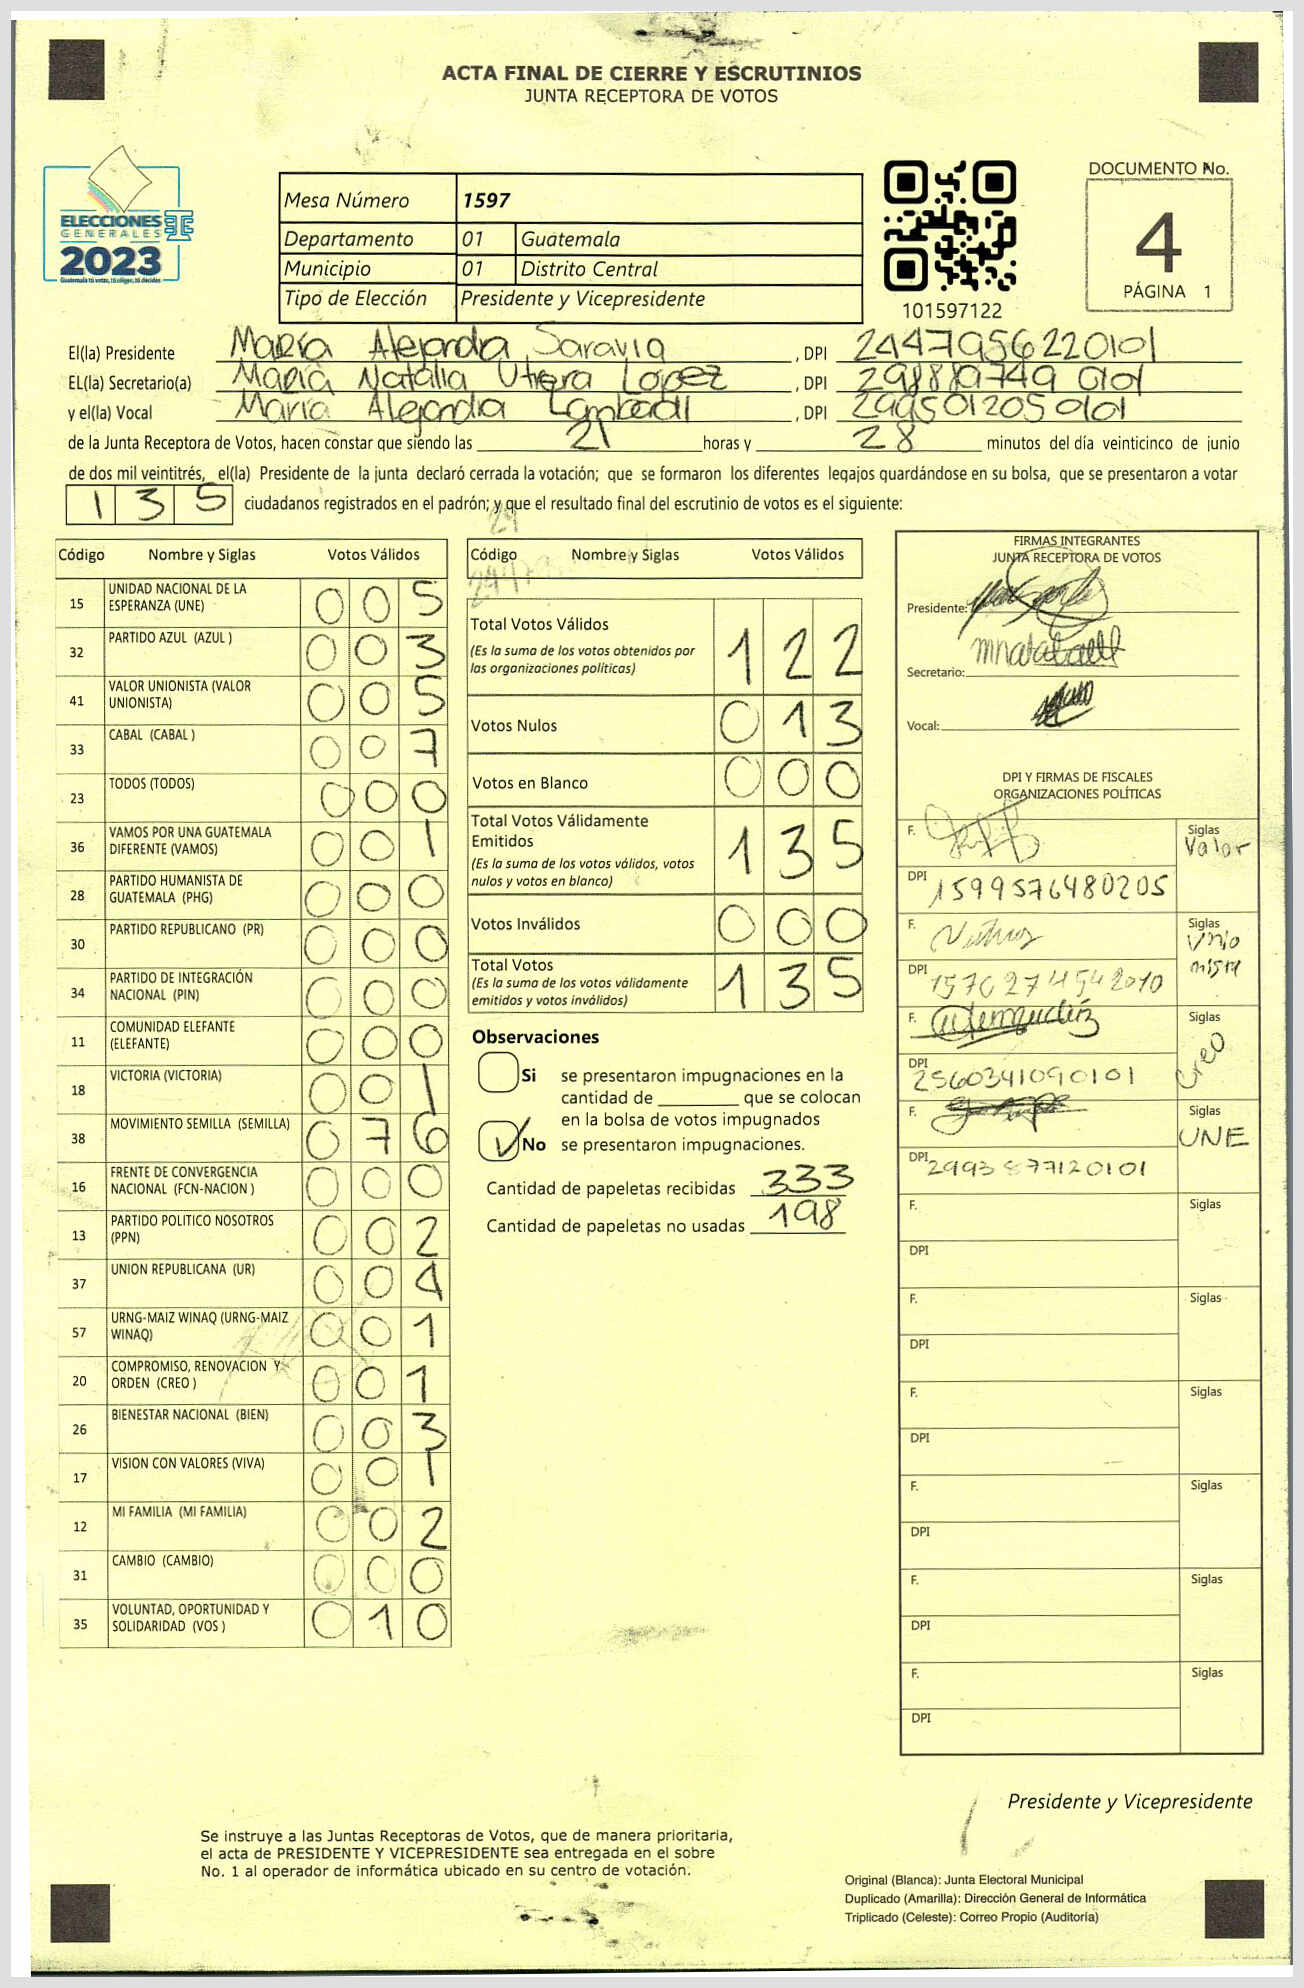 ACTA FINAL DE CIERRE Y ESCRUTINIOS
JUNTA RECEPTORA DE VOTOS
ELECCIONES
GENERALES
2023
Guatemala tú votas, tú eliges, tú decides
Mesa Número 1597
Departamento 01 Guatemala
Municipio 01 Distrito Central
Tipo de Elección Presidente y Vicepresidente
101597122
DOCUMENTO No.
4
PÁGINA 1
El(la) Presidente María Alejandra Saravia, DPI 2447956220101
EL(la) Secretario(a) María Natalia Utrera Lopez, DPI 298889749 0101
y el(la) Vocal María Alejandra, DPI 299501205 0101
de la Junta Receptora de Votos, hacen constar que siendo las 21 horas y 28 minutos del día veinticinco de junio
de dos mil veintitrés, el(la) Presidente de la junta declaró cerrada la votación; que se formaron los diferentes legajos quardándose en su bolsa, que se presentaron a votar
135 ciudadanos registrados en el padrón; y que el resultado final del escrutinio de votos es el siguiente:
Código Nombre y Siglas Votos Válidos
15 UNIDAD NACIONAL DE LA ESPERANZA (UNE) 005
32 PARTIDO AZUL (AZUL ) 003
41 VALOR UNIONISTA (VALOR UNIONISTA) 005
33 CABAL (CABAL ) 007
23 TODOS (TODOS) 000
36 VAMOS POR UNA GUATEMALA DIFERENTE (VAMOS) 001
28 PARTIDO HUMANISTA DE GUATEMALA (PHG) 000
30 PARTIDO REPUBLICANO (PR) 000
34 PARTIDO DE INTEGRACIÓN NACIONAL (PIN) 000
11 COMUNIDAD ELEFANTE (ELEFANTE) 000
18 VICTORIA (VICTORIA) 001
38 MOVIMIENTO SEMILLA (SEMILLA) 076
16 FRENTE DE CONVERGENCIA NACIONAL (FCN-NACION ) 000
13 PARTIDO POLITICO NOSOTROS (PPN) 002
37 UNION REPUBLICANA (UR) 004
57 URNG-MAIZ WINAQ (URNG-MAIZ WINAQ) 001
20 COMPROMISO, RENOVACION Y ORDEN (CREO ) 001
26 BIENESTAR NACIONAL (BIEN) 003
17 VISION CON VALORES (VIVA) 001
12 MI FAMILIA (MI FAMILIA) 002
31 CAMBIO (CAMBIO) 000
35 VOLUNTAD, OPORTUNIDAD Y SOLIDARIDAD (VOS ) 010
Código Nombre y Siglas Votos Válidos
Total Votos Válidos 122
(Es la suma de los votos obtenidos por
las organizaciones políticas)
Votos Nulos 013
Votos en Blanco 000
Total Votos Válidamente
Emitidos 135
(Es la suma de los votos válidos, votos
nulos y votos en blanco)
Votos Inválidos 000
Total Votos 135
(Es la suma de los votos válidamente
emitidos y votos inválidos)
Observaciones
Si se presentaron impugnaciones en la
cantidad de ________ que se colocan
en la bolsa de votos impugnados
No se presentaron impugnaciones.
Cantidad de papeletas recibidas 333
Cantidad de papeletas no usadas 198
FIRMAS INTEGRANTES
JUNTA RECEPTORA DE VOTOS
Presidente:
Secretario:
Vocal:
DPI Y FIRMAS DE FISCALES
ORGANIZACIONES POLÍTICAS
F. Siglas Valor
DPI 1599576480205
F. Siglas Unionista
DPI 1570274542010
F. Siglas Creo
DPI 2560341090101
F. Siglas UNE
DPI 2993877120101
F. Siglas
DPI
F. Siglas
DPI
F. Siglas
DPI
F. Siglas
DPI
F. Siglas
DPI
F. Siglas
DPI
Presidente y Vicepresidente
Se instruye a las Juntas Receptoras de Votos, que de manera prioritaria,
el acta de PRESIDENTE Y VICEPRESIDENTE sea entregada en el sobre
No. 1 al operador de informática ubicado en su centro de votación.
Original (Blanca): Junta Electoral Municipal
Duplicado (Amarilla): Dirección General de Informática
Triplicado (Celeste): Correo Propio (Auditoría)